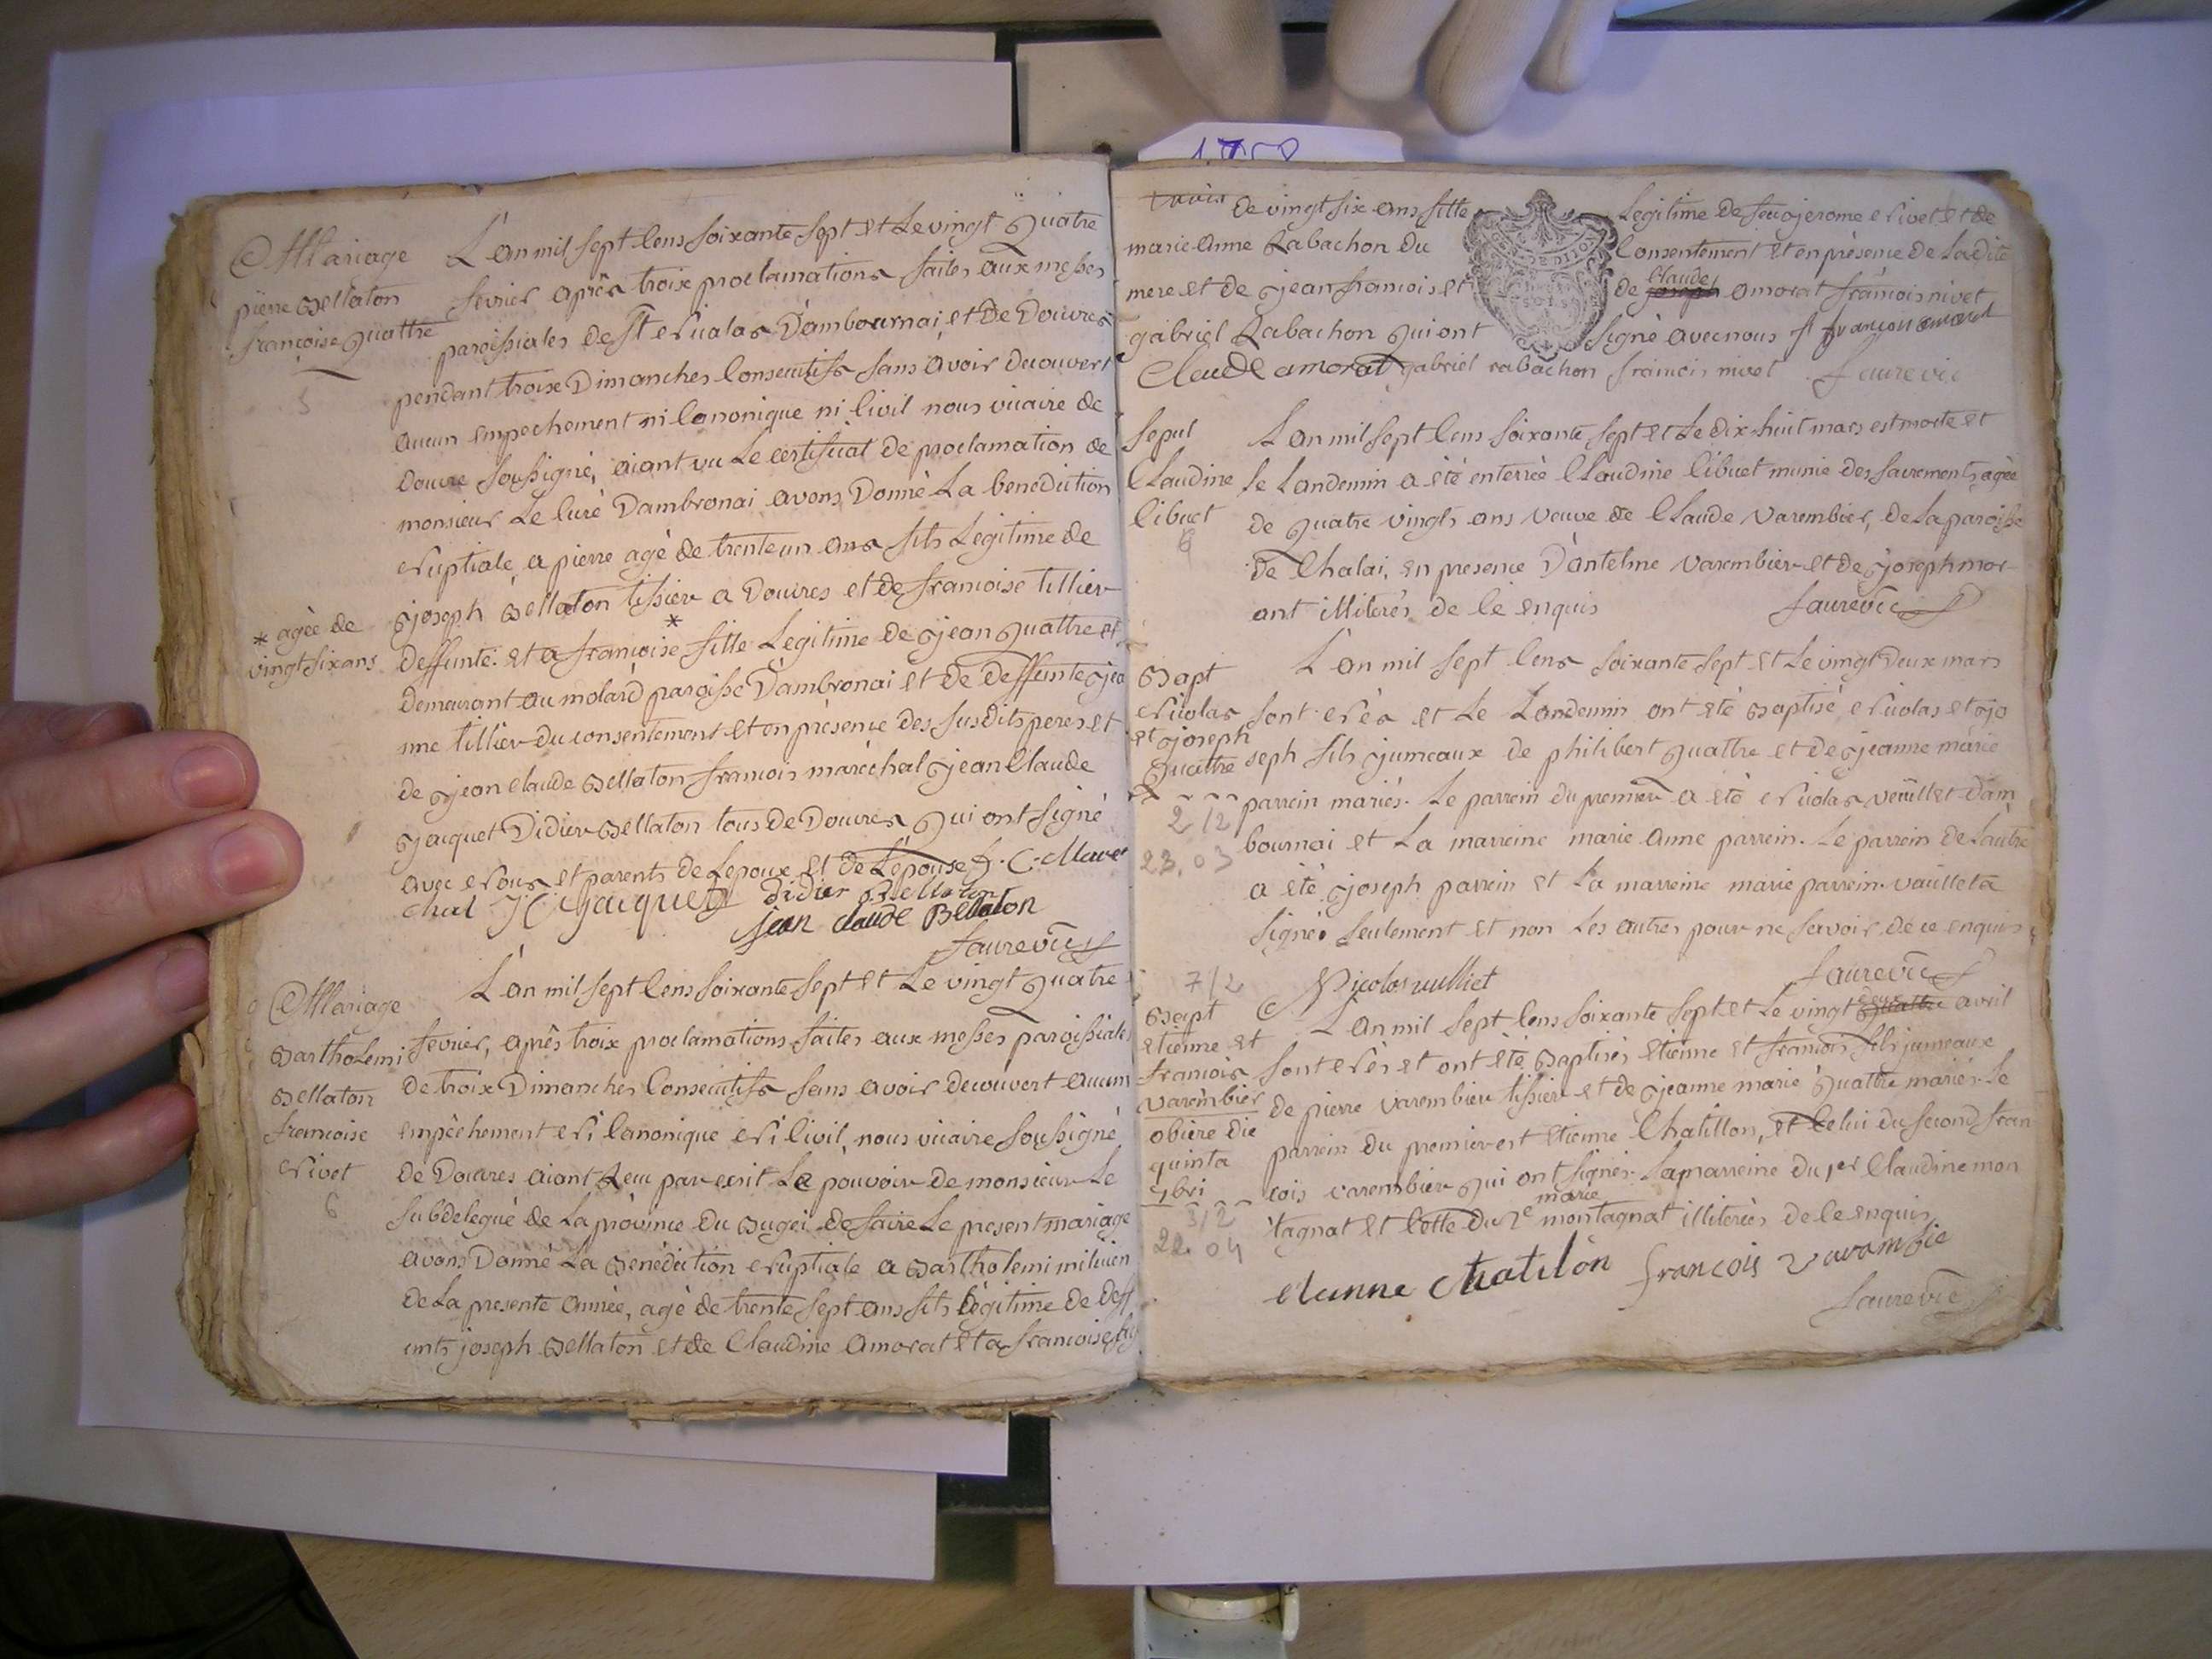 1758
Mariage
pierre Bellaton
françoise Quattre
5
L'an mil sept cens soixante sept et Le vingt Quatre
fevrier après troix proclamations faites aux messes
paroissiales de st Nicolas D'ambournai et De Douvres
pendant troix Dimanches Consecutifs sans avoir decouvert
aucun empechement ni Canonique ni Civil nous vicaire de
Douvre soussigné, aiant vu Le certificat de proclamation de
monsieur Le Curé Dambronai avons Donné La benediction
Nuptiale, a pierre agé de trente un ans fils Legitime de
joseph Bellaton tissier a Douvres et de francoise tillier
* agée de
vingt six ans
deffunte. et a francoise * fille Legitime de jean Quattre et
demeurant au molard paroisse D'ambronai et de deffunte jea
nne tillier du consentement et en présence des susdits peres et
de jean claude Bellaton francois maréchal jean Claude
jacquet Didier Bellaton tous de Douvres Qui ont signé
avec Nous et parents de Lepoux et de L'epouse f. C. Mare
chal J C jacquet didier Bellaton
jean claude Bellaton
faure vic
Mariage
Bartholemi
Bellaton
francoise
Nivet
6
L'an mil sept cens soixante sept et Le vingt Quatre
fevrier, après troix proclamations faites aux messes paroissiales
de troix Dimanches Consecutifs sans avoir decouvert aucun
empêchement Ni Canonique Ni Civil, nous vicaire soussigné
de Douvres aiant Reçu par ecrit Le pouvoir de monsieur Le
subdelegué de La province du Bugei de faire Le present mariage
avons Donné La Benédiction Nuptiale a Bartholemi milicien
de La presente année, agé de trente sept ans fils Légitime de deff
unts joseph Bellaton et de Claudine Amorat et a francoise
de vingt six ans fille Legitime de feu jerome Nivet et de
marie Anne Rabachon du Consentement et en présence de La dite
mere et de jean francois et de joseph Claude amorat francois nivet
gabriel Rabachon Qui ont signé avec nous f françois amorat
Claude amorat gabriel rabachon francois nivet faure vic
Sepul
Claudine
Cibuet
6
L'an mil sept cens soixante sept et Le dix-huit mars est morte et
le Landemin a été enterrée Claudine Cibuet munie des sacrements, agée
de Quatre vingts ans veuve de Claude varembier, de La paroisse
de Chalai, en presence D'antelme varembier et de joseph mor-
ant illiterés de ce enquis faure vic
Bapt
Nicolas
et joseph
Quattre
2/2
23.03
L'an mil sept cens soixante sept et Le vingt Deux mars
sont Nés et Le Landemin ont été Baptisé Nicolas et jo
seph fils jumeaux de philibert Quattre et de jeanne marie
parrein mariés. Le parrein du premier a été Nicolas veüillet d'am
bournai et La marreine marie anne parrein. Le parrein de L'autre
a été joseph parrein et La marreine marie parrein. vaüillet a
signé seulement et non Les autres pour ne savoir de ce enquis
Nicolas vulliet faure vic
7/2
Bapt
etienne et
francois
varembier
obiere die
quinta
7bri
3/2
22.04
L'an mil sept cens soixante sept et Le vingt Quattre deux avril
sont Nés et ont été Baptisés etienne et francois fils jumeaux
de pierre varembier tissier et de jeanne marie Quattre mariés. Le
parrein du premier est etienne Chatillon, et Celui du second fran
cois varembier Qui ont signés. La marreine du 1er Claudine mon
tagnat et Cette du 2e marie montagnat illiterées de ce enquis
etienne Chatilon francois varambie
faure vic